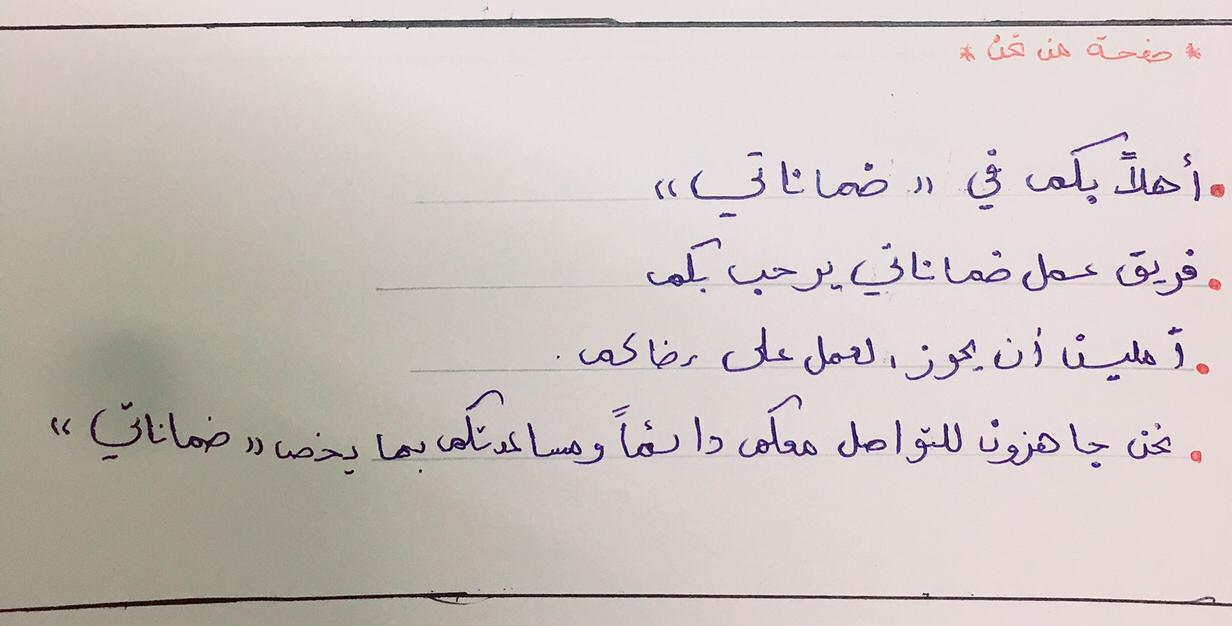 * صفحة من نحن *
• أهلاً بكم في " ضماناتي "
• فريق عمل ضماناتي يرحب بكم
• آملين أن يحوز العمل على رضاكم .
• نحن جاهزون للتواصل معكم دائماً ومساعدتكم بما يخص " ضماناتي "